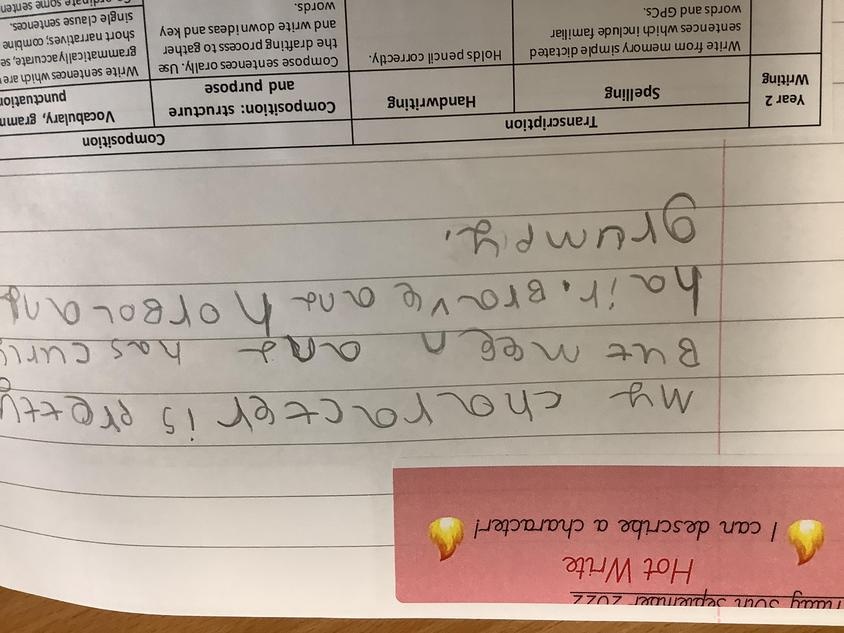 Friday 30th September 2022
Hot Write
I can describe a character!
My character is pretty
But meen and has curly
hair. Brave and horBol and
grumpy.
Transcription
Composition
Year 2 Writing
Spelling
Handwriting
Composition: structure and purpose
Vocabulary,
Write from memory simple dictated sentences which include familiar words and GPCs.
Holds pencil correctly.
Compose sentences orally. Use the drafting process to gather and write down ideas and key words.
Write sentences which are
grammatically accurate,
short narratives; combine
single clause sentences.